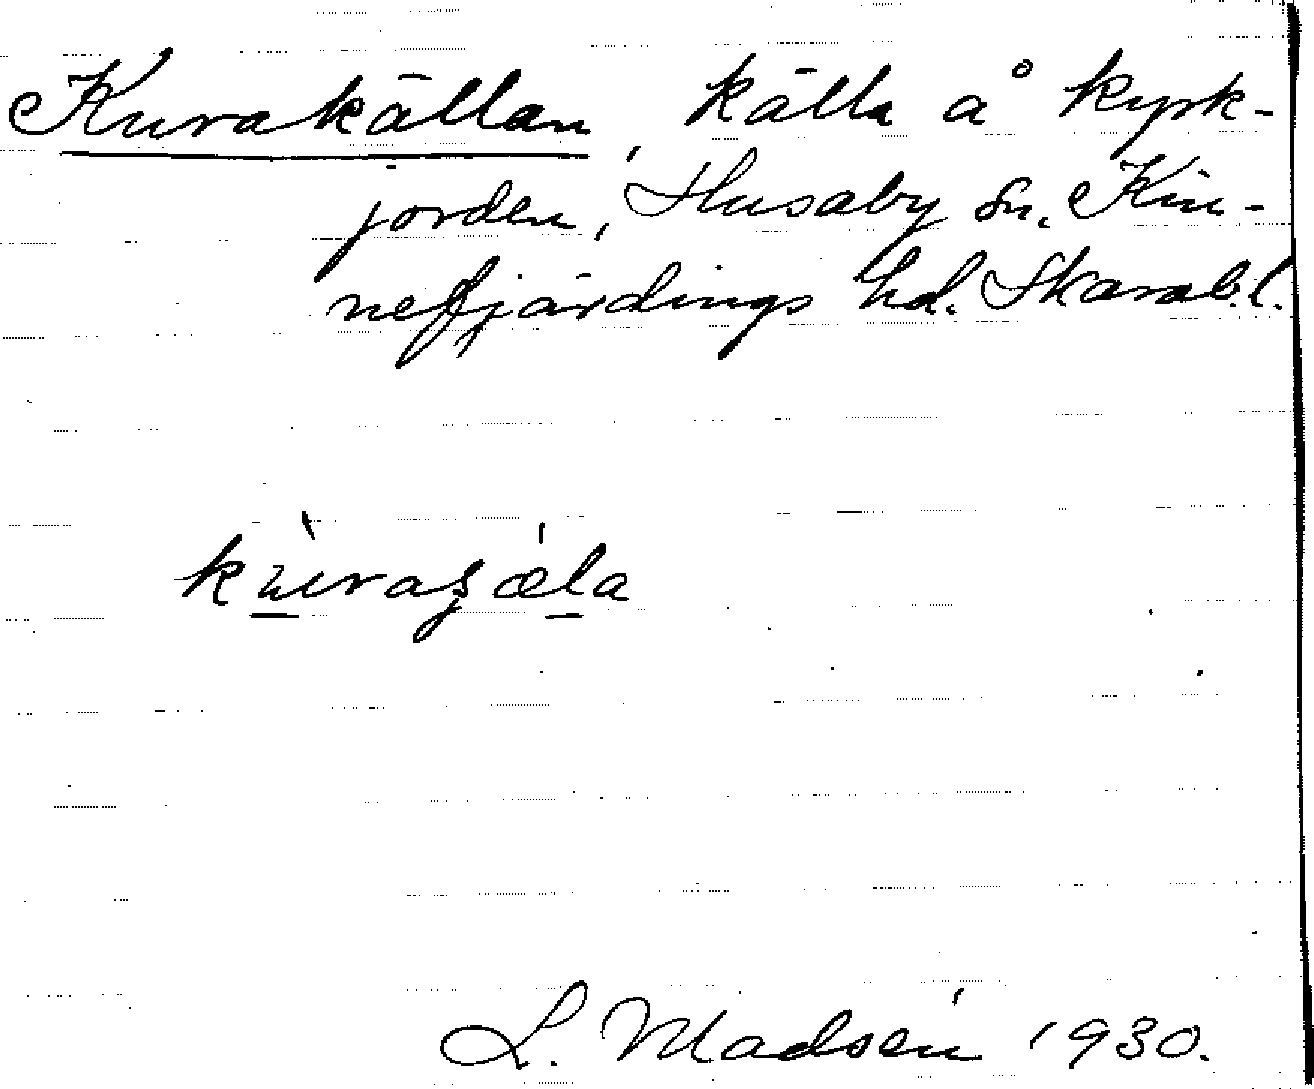 Kurakällan källa å kyrk-
jorden, Husaby sn. Kin-
nefjärdings hd. Skarab.l.
L. Madsén 1930.